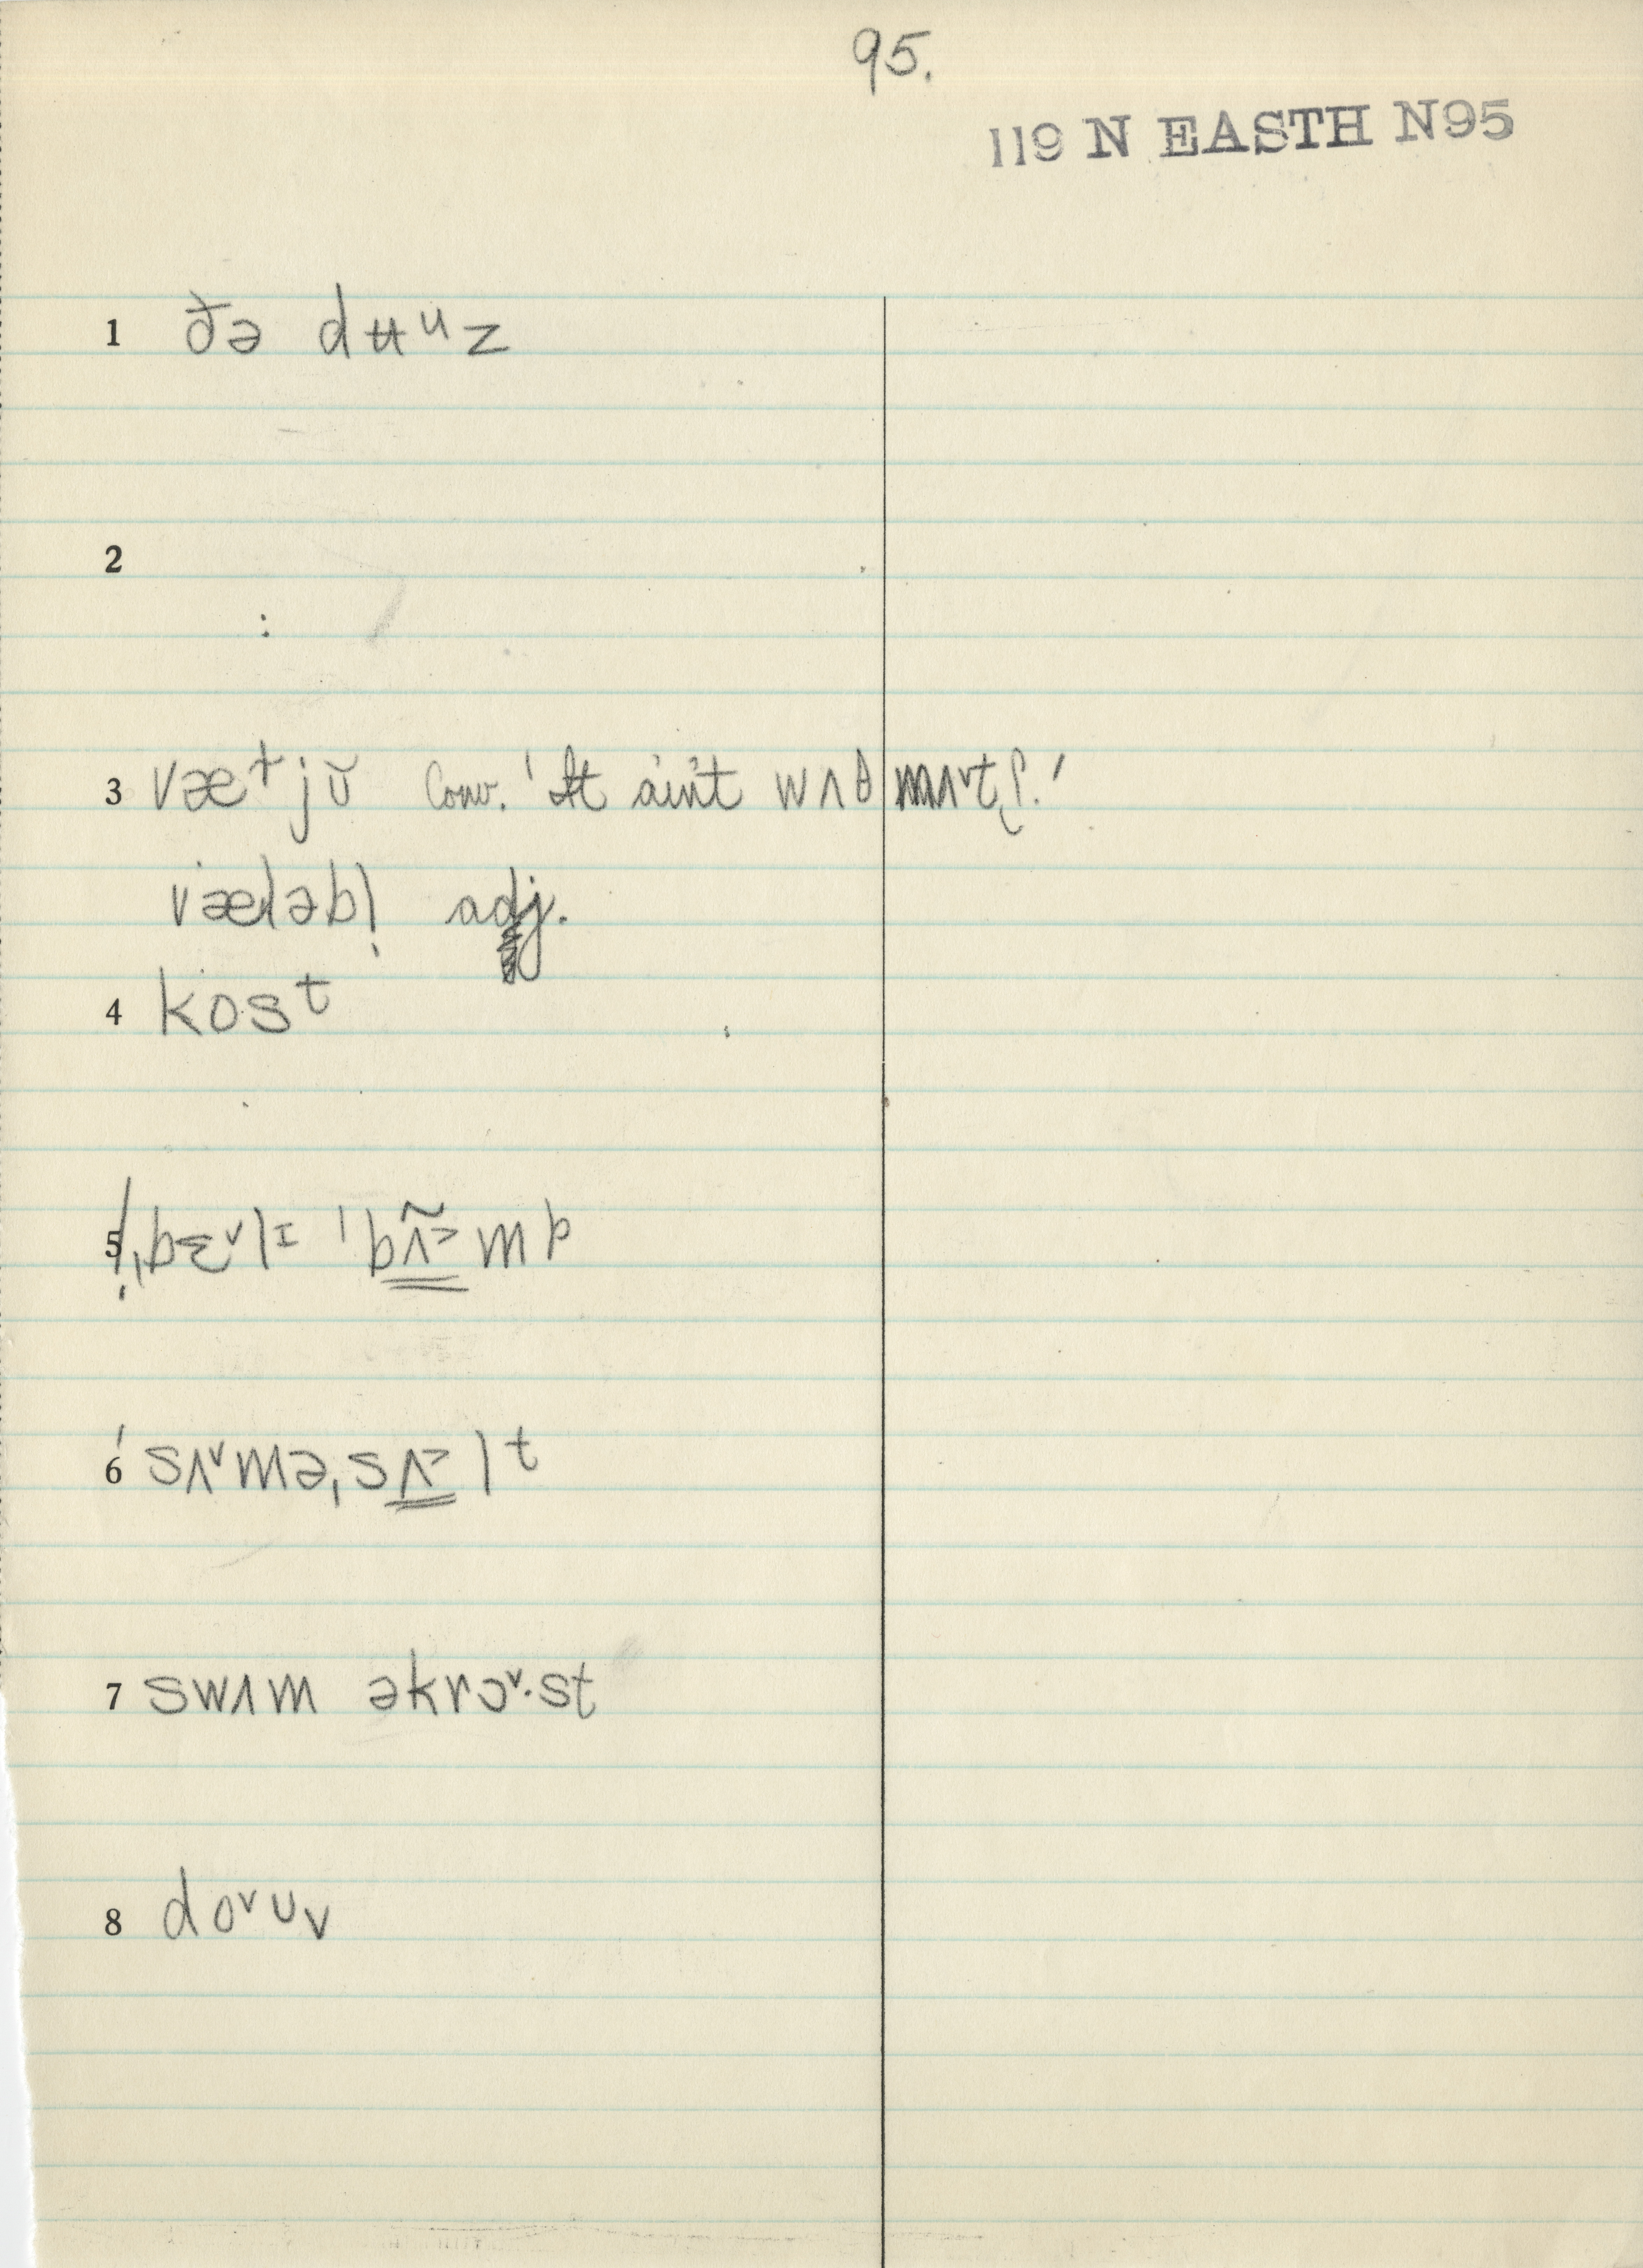 95.
119 N EASTH N95
1 ðə dʉᵘz
2
3 væɫjŭ Conv. 'It ain't wʌθ mʌ˅tʃ.'
væləbl̩ adj.
4 kosᵗ
5 ˌbɛ˅lɪ ˈbʌ̃˃mp
6 ˈsʌ˅məˌsʌ˃lᵗ
7 swʌm əkrɔ˅·st
8 do˅ᴜv